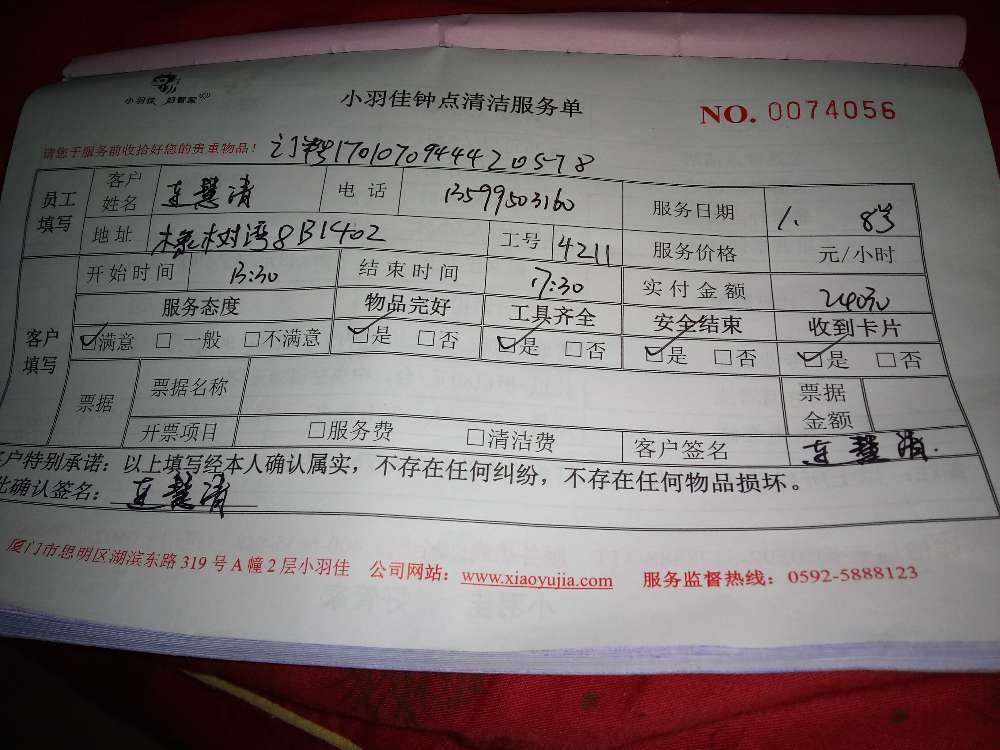 小羽佳 妇管家
小羽佳钟点清洁服务单
NO. 0074056
请您于服务前收拾好您的贵重物品！
1701070944420578
员工填写 客户姓名 慧清 电话 13599503160 服务日期 1. 8号
地址 橡树湾8B1402 工号 4211 服务价格 元/小时
客户填写 开始时间 13:30 结束时间 17:30 实付金额 240元
服务态度 物品完好 工具齐全 安全结束 收到卡片
☑满意 □一般 □不满意 ☑是 □否 ☑是 □否 ☑是 □否 ☑是 □否
票据 票据名称 票据金额
开票项目 □服务费 □清洁费 客户签名 慧清
客户特别承诺：以上填写经本人确认属实，不存在任何纠纷，不存在任何物品损坏。
此确认签名： 慧清
厦门市思明区湖滨东路 319 号 A 幢 2 层小羽佳 公司网站：www.xiaoyujia.com 服务监督热线：0592-5888123